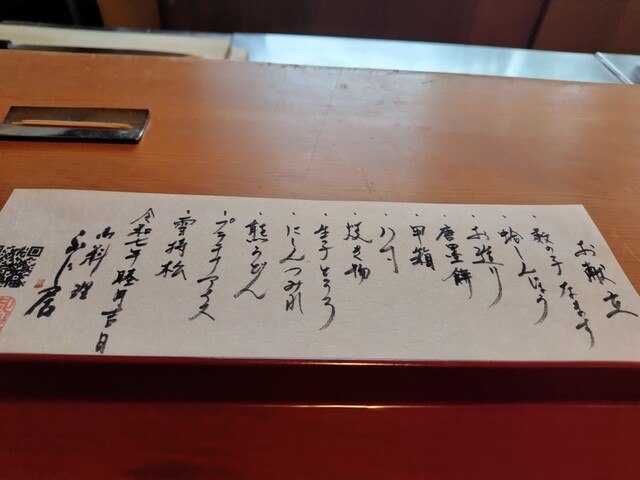 お献立
・数の子 なます
・蛤しんじょう
・お造り
・唐墨餅
・甲箱
・八寸
・焼き物
・生子とろろ
・にしんつみれ
・熊うどん
・プラチナアイス
・雪持松
令和七年 睦月吉日
御料理